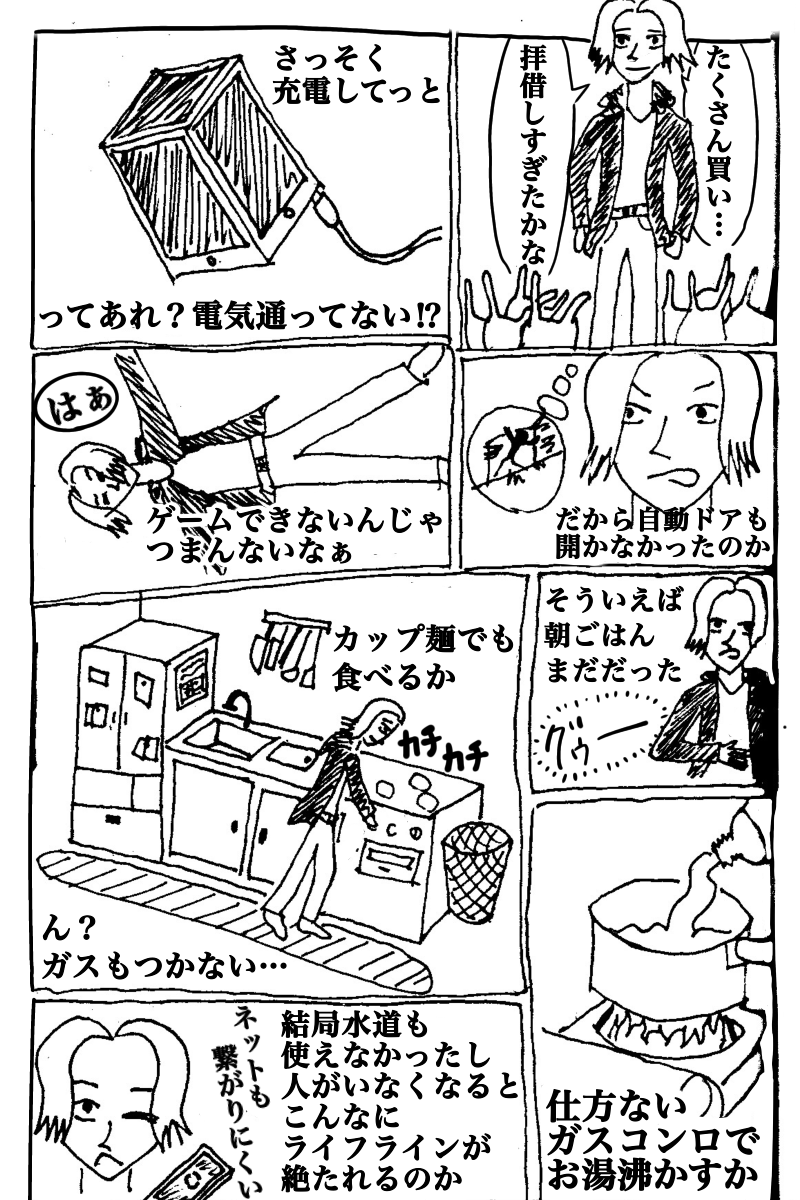 たくさん買い…
拝借しすぎたかな
さっそく
充電してっと
ってあれ？電気通ってない!?
だから自動ドアも
開かなかったのか
はぁ
ゲームできないんじゃ
つまんないなぁ
そういえば
朝ごはん
まだだった
グゥー
カップ麺でも
食べるか
カチ
カチ
ん？
ガスもつかない…
仕方ない
ガスコンロで
お湯沸かすか
結局水道も
使えなかったし
人がいなくなると
こんなに
ライフラインが
絶たれるのか
ネットも
繋がりにくい